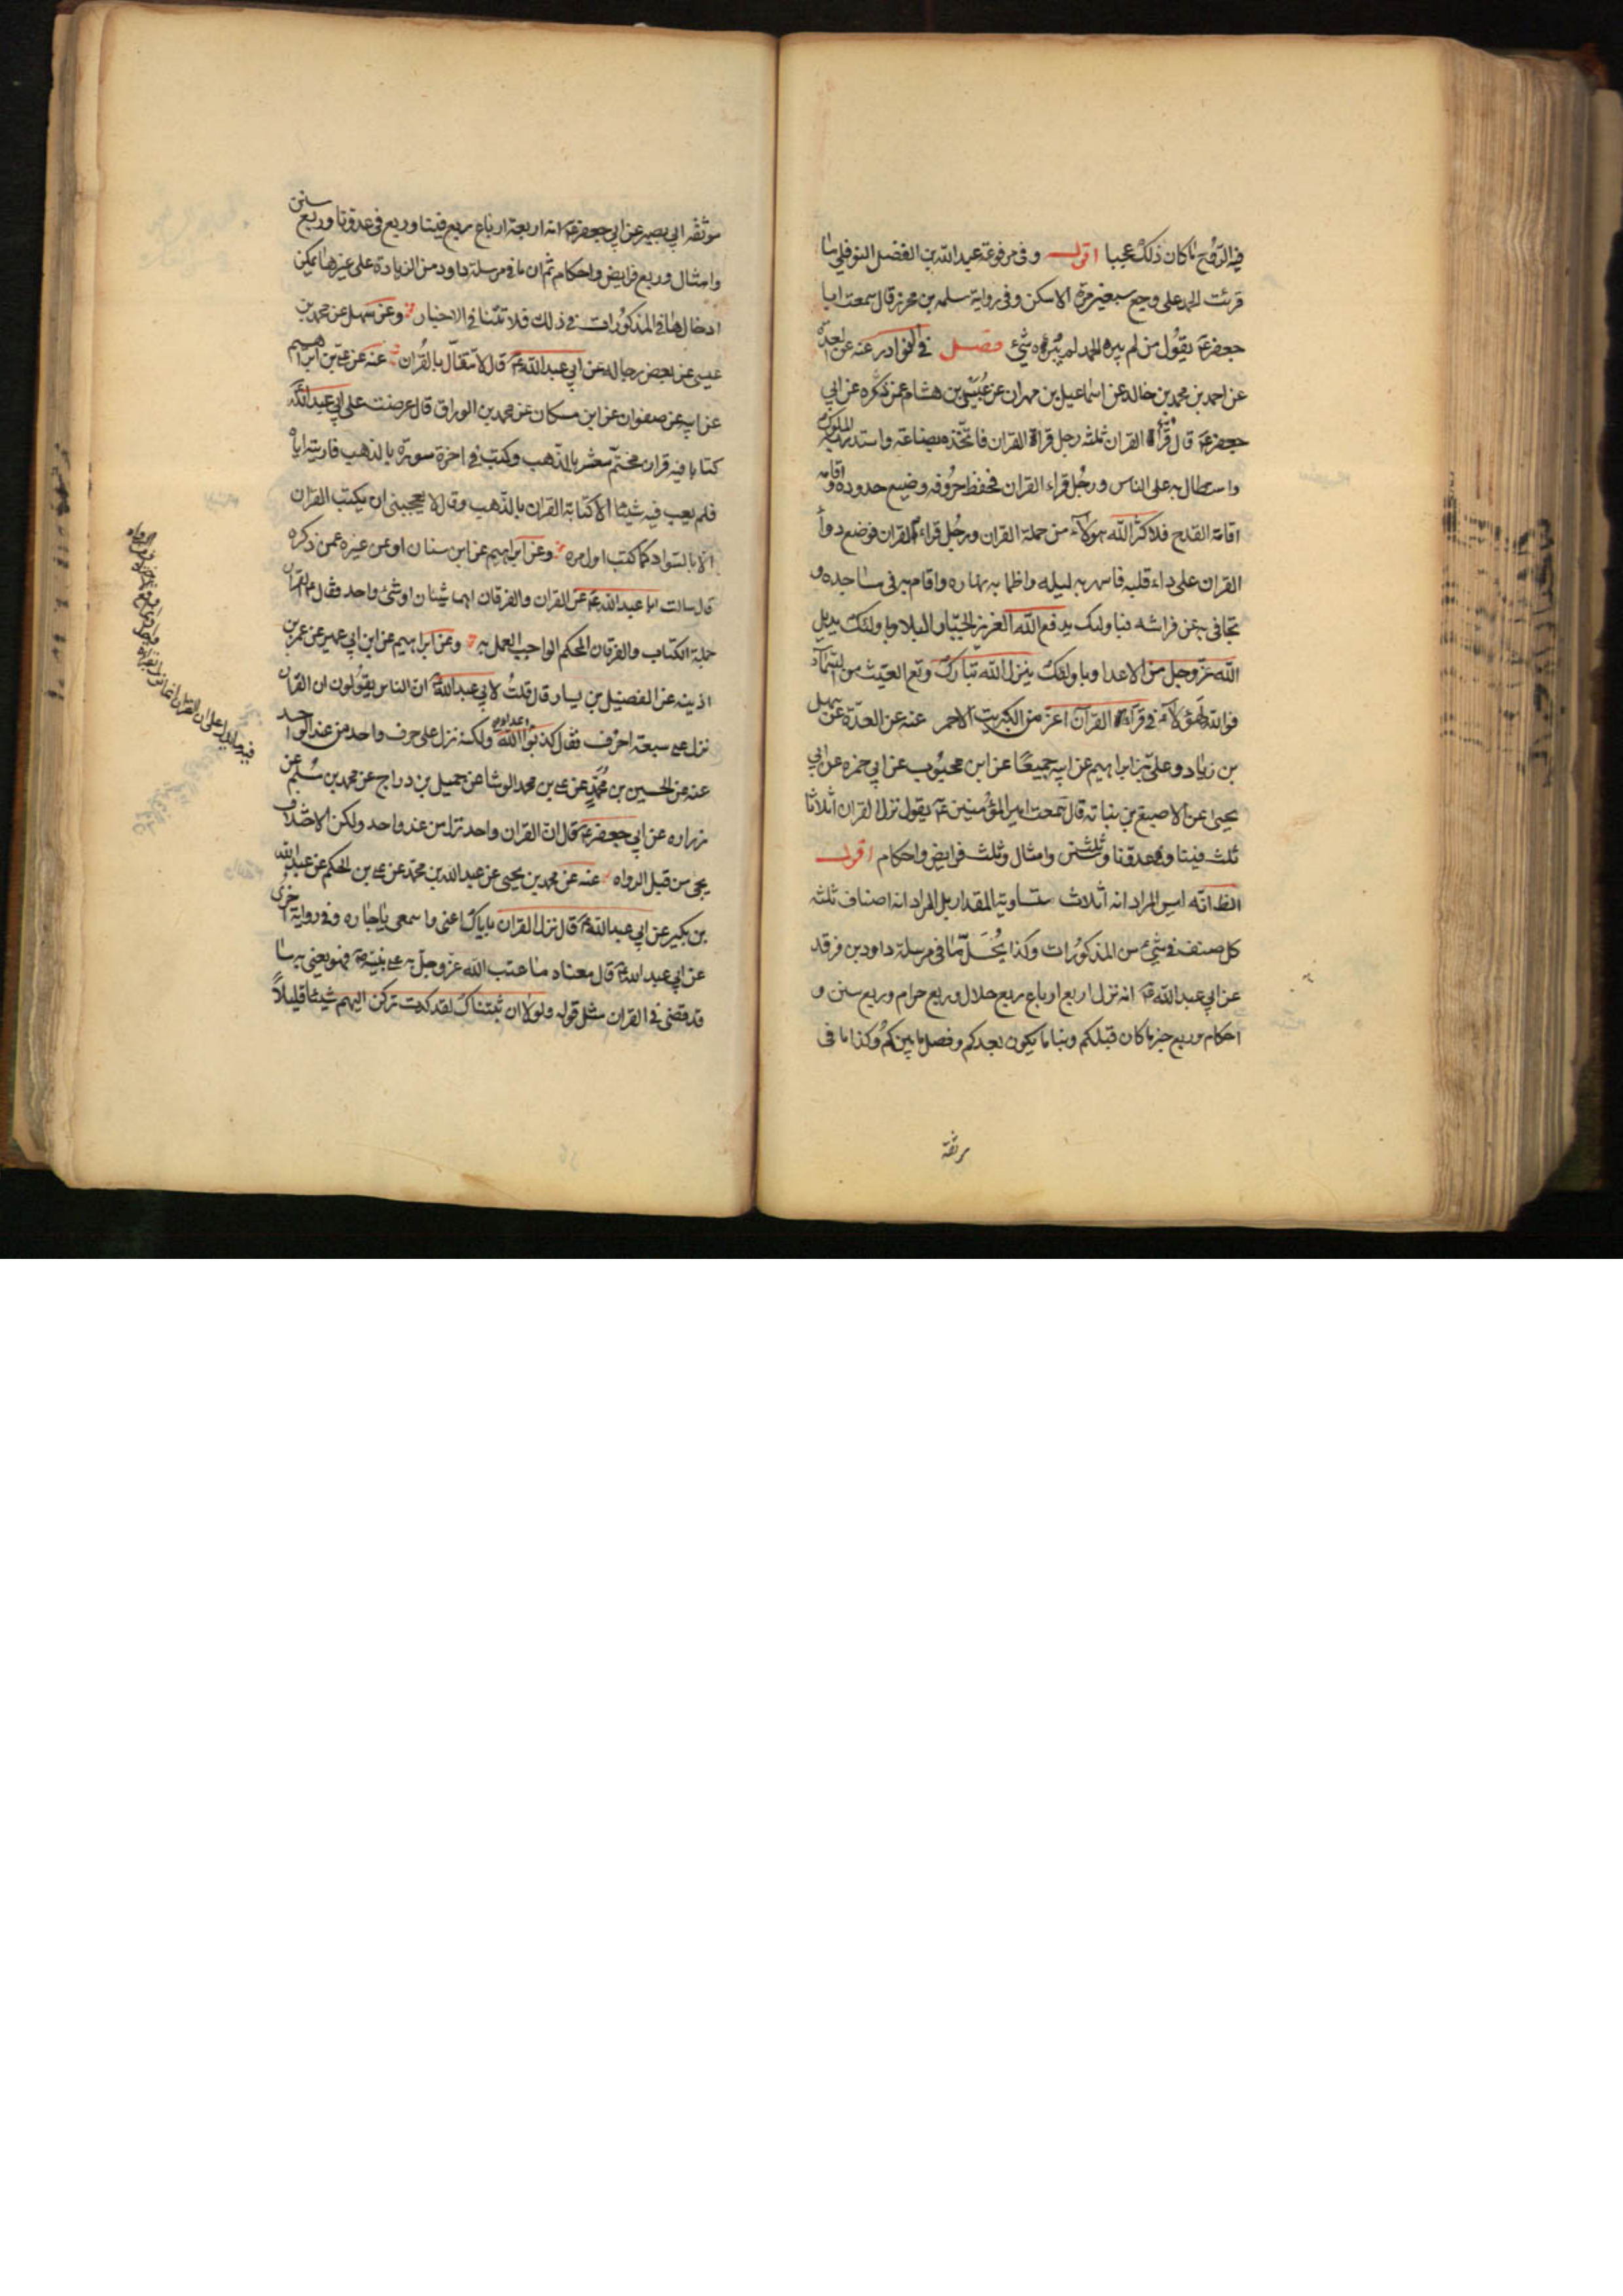 فيه الروح ما كان ذلك عجبا اقول وفى مرفوعة عبد الله بن الفضل النوفلى ما
قرئت الحمد على وجع سبعين مرة الا سكن وفى رواية سلمه بن محرز قال سمعت ابا
جعفر ع يقول من لم يبره الحمد لم يبرءه شئ فصل فى النوادر عنه عن العدة
عن احمد بن محمد بن خالد عن اسماعيل بن مهران عن عبيس بن هشام عمن ذكره عن ابى
جعفر ع قال قرأة القران ثلثه رجل قرأة القران فاتخذه بضاعة واستدر به الملوك
واستطال به على الناس ورجل قراء القران فحفظ حروفه وضيع حدوده واقامه
اقامة القدح فلا كثر الله هولاء من حملة القران ورجل قراء القران فوضع دوأ
القران على داء قلبه فاسهر به ليله واظما به نهاره واقام به فى مساجده و
تجافى به عن فراشه فباولئك يدفع الله العزيز الجبار البلا وباولئك يديل
الله عز وجل من الاعدا وباولئك ينزل الله تبارك وتع الغيث من السماء
فو الله لهؤلاء فى قرأة القرآن اعز من الكبريت الاحمر عنه عن العدة عن سهل
بن زياد وعلى بن ابراهيم عن ابيه جميعًا عن ابن محبوب عن ابى حمزه عن ابى
يحيى عن الاصبغ بن نباته قال سمعت امير المؤمنين ع يقول نزل القران اثلاثا
ثلث فينا وفى عدونا وثلث سنن وامثال وثلث فرايض واحكام اقول
الظ انه ليس المراد انه اثلاث متساوية المقدار بل المراد انه اصناف ثلثه
كل صنف فى شئ من المذكورات وكذا يُحمَل ما فى مرسلة داود بن فرقد
عن ابى عبد الله ع انه نزل اربع ارباع ربع حلال وربع حرام وربع سنن و
احكام وربع خبر ما كان قبلكم ونبا ما يكون بعدكم وفصل ما بينكم وكذا ما فى
موثقه ابى بصير عن ابى جعفر ع انه اربعة ارباع ربع فينا وربع فى عدونا وربع سنن
وامثال وربع فرايض واحكام ثم ان ما فى مرسلة داود من الزيادة على غيرها يمكن
ادخالها فى المذكورات فى ذلك فلا تنافى الاخبار وعن سهل عن محمد بن
عيسى عن بعض رجاله عن ابى عبد الله ع قال لا تتفأل بالقُران عنه عن على بن ابراهيم
عن ابيه عن صفوان عن ابن مسكان عن محمد بن الوراق قال عرضت على ابى عبد الله
كتابا فيه قران مختم معشر بالذهب وكتب فى اخرة سورة بالذهب فاريته اياه
فلم يعب فيه شيئا الا كتابة القران بالذهب وقال لا يعجبنى ان يكتب القران
الا بالسواد كما كتب اول مره وعن ابراهيم عن ابن سنان او عن غيره عمن ذكره
قال سالت ابا عبد الله ع عن القران والفرقان اهما شيئان او شئ واحد فقال ع القران
جملة الكتاب والفرقان المحكم الواجب العمل به وعن ابراهيم عن ابن ابى عمير عن عمر بن
اذينه عن الفضيل بن يسار قال قلتُ لابى عبد الله ع ان الناس يقولون ان القران
نزل على سبعة احرف فقال كذبوا اعداء الله ولكنه نزل على حرف واحد من عند الواحد
عنه عن الحسين بن محمد عن على بن محمد الوشا عن جميل بن دراج عن محمد بن مسلم عن
زراره عن ابى جعفر ع قال ان القران واحد نزل من عند واحد ولكن الاختلاف
يجئ من قبل الرواه عنه عن محمد بن يحيى عن عبد الله بن محمد عن على بن الحكم عن عبد الله
بن بكير عن ابى عبد الله ع قال نزل القران باياك اعنى واسمعى ياجاره وفى رواية اخرى
عن ابى عبد الله ع قال معناه ما عتب الله عز وجل به على نبيه ص فهو يعنى به ما
قد قضى فى القران مثل قوله ولولا ان ثبتناك لقد كدت تركن اليهم شيئا قليلاً